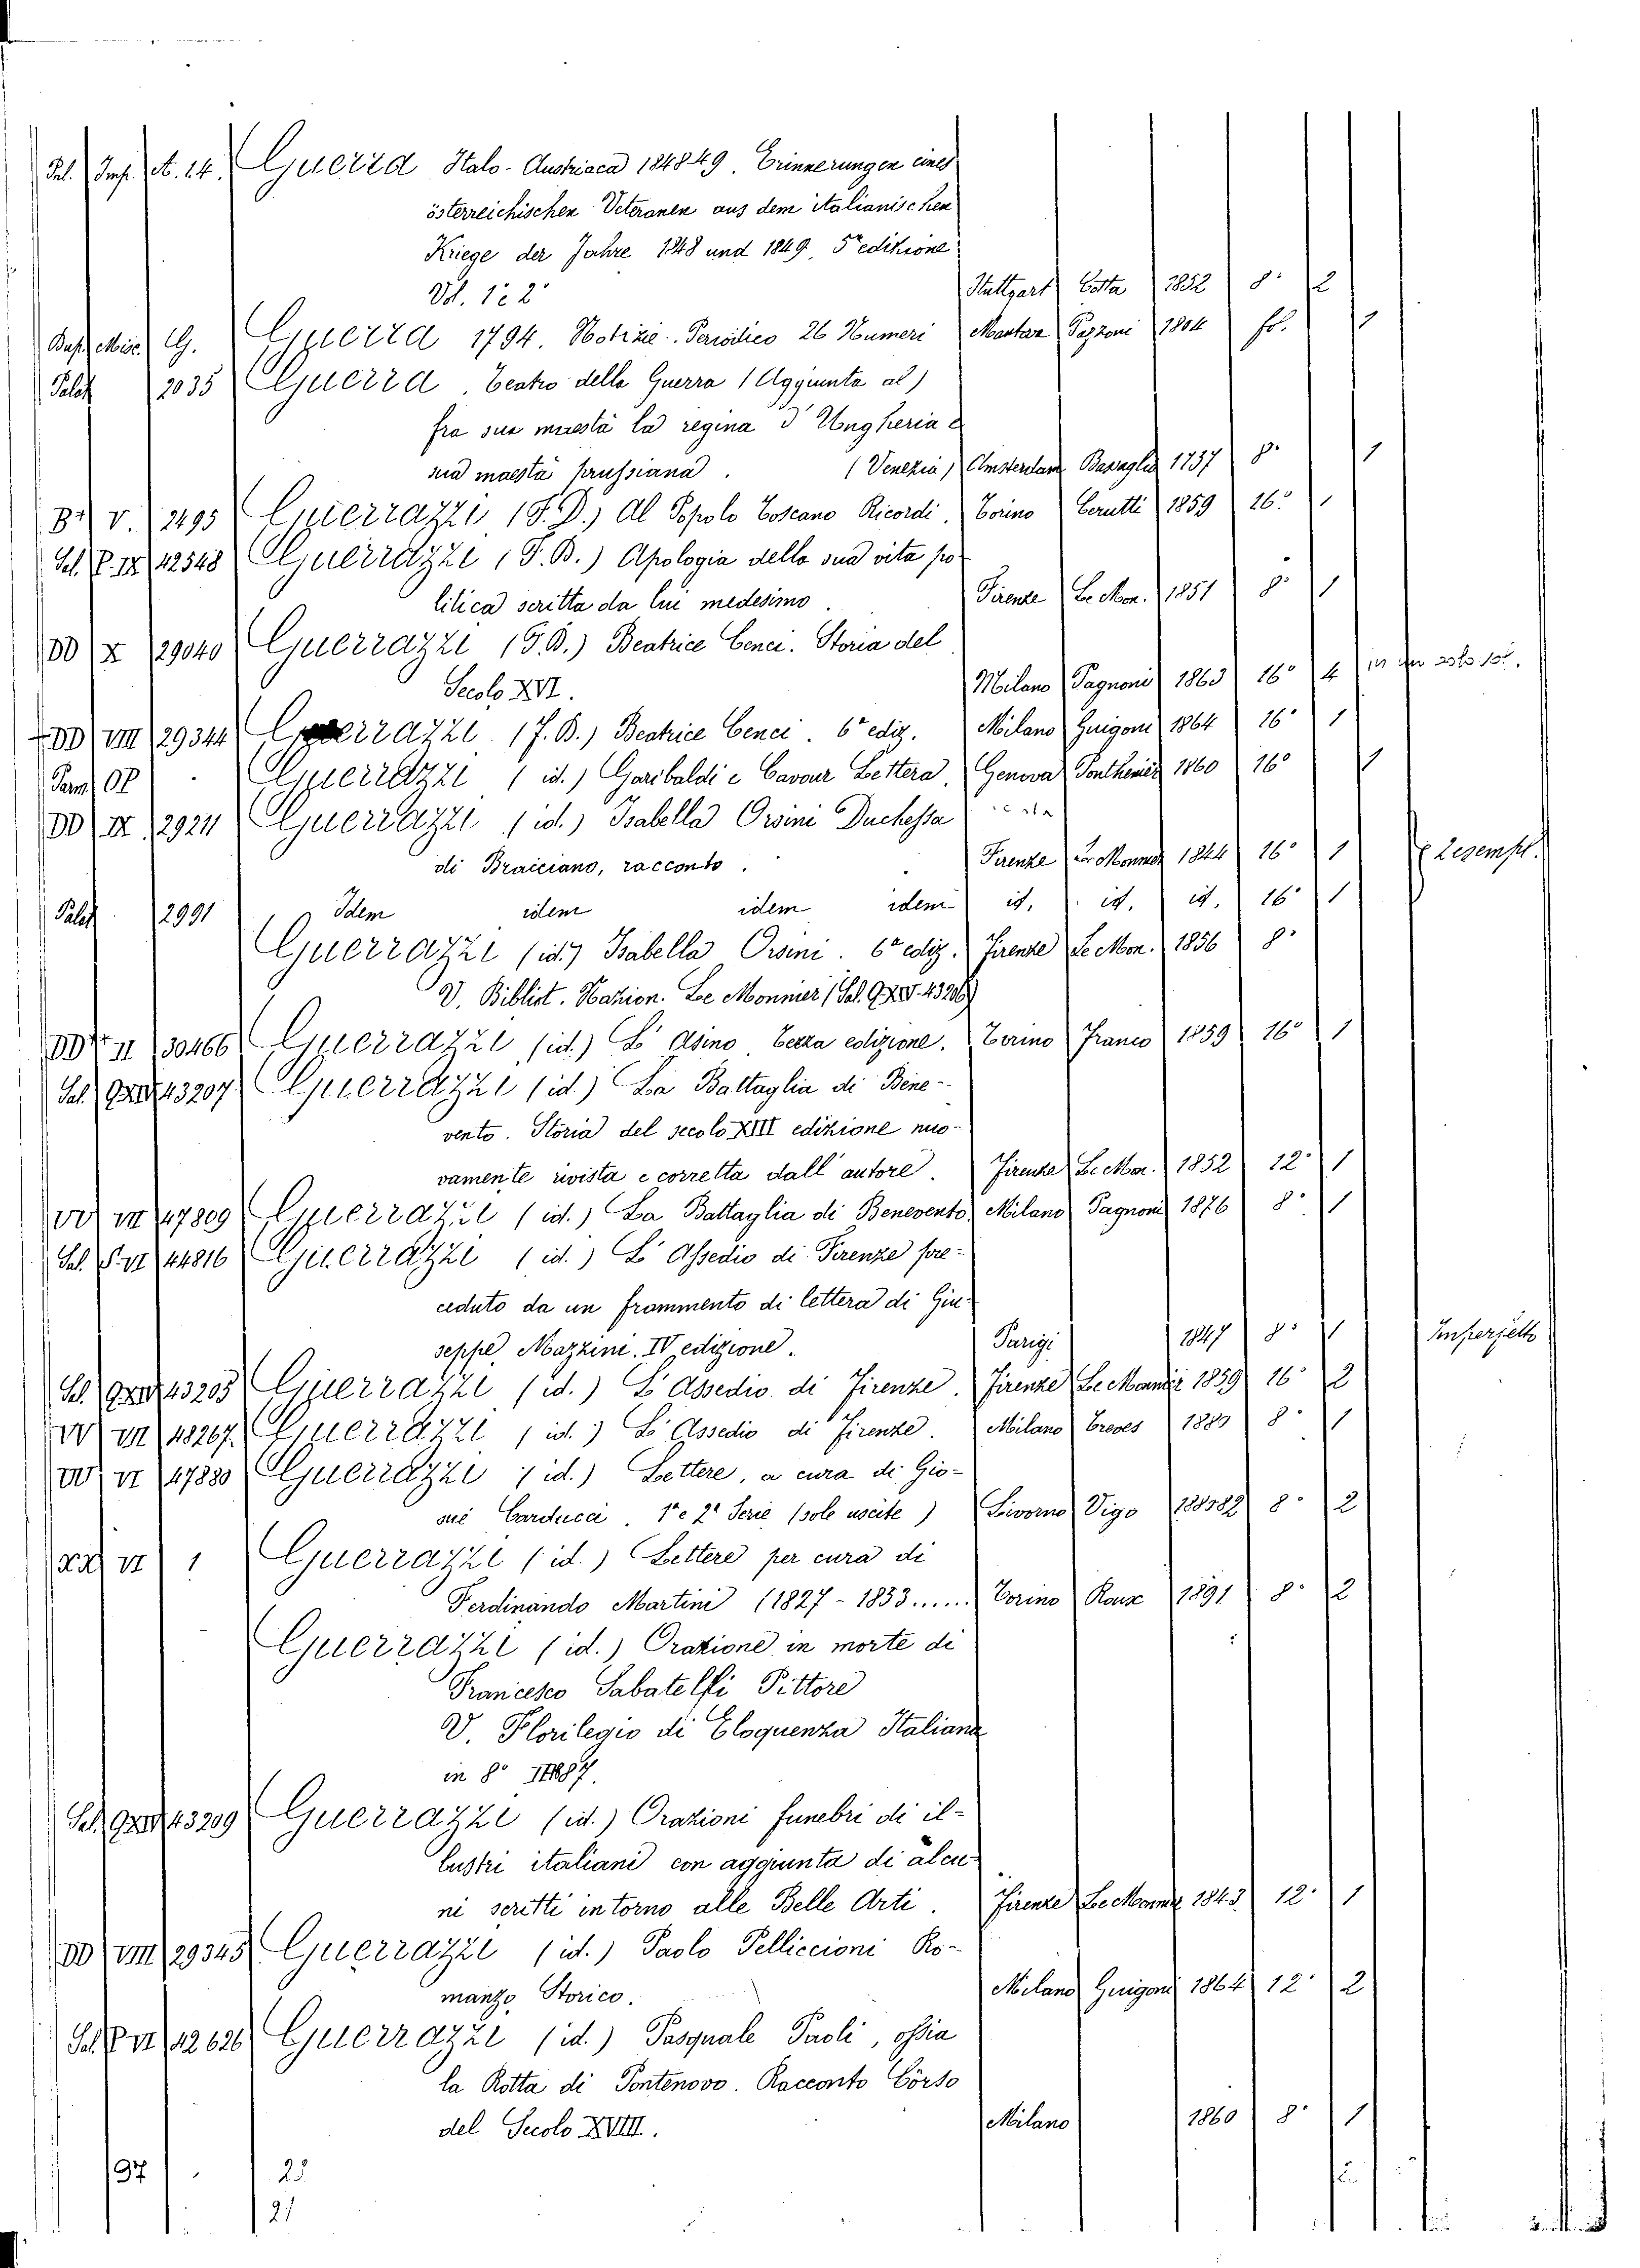 Guerra Italo-Austriaca 184849. Erinnerungen eines
österreichischen Veteranen aus dem italianischen
Kriege der Jahre 1848 und 1849. 5ª edizione
Vol. 1 e 2° Stuttgart Cotta 1852 8° 2
G. Guerra 1794. Notizie. Periodico 26 Numeri 1804 fo. 1
2035 Guerra. Teatro della Guerra (Aggiunta al)
fra sua maestà la regina d'Ungheria e
sua maestà prussiana. (Venezia) Amsterdam 1737 8° 1
V. 2495 Guerrazzi (F. D.) Al Popolo Toscano Ricordi. Torino Cerutti 1859 16° 1
42548 Guerrazzi (F. D.) Apologia della sua vita po-
litica scritta da lui medesimo. Firenze Le Mon. 1851 8° 1
DD X 29040 Guerrazzi (F. D.) Beatrice Cenci. Storia del
Secolo XVI. Milano Pagnoni 1863 16° 4
DD VIII 29344 Guerrazzi (F. D.) Beatrice Cenci. 6ª ediz. Milano Guigoni 1864 16° 1
OP Guerrazzi (id.) Garibaldi e Cavour Lettera Genova Ponthenier 1860 16° 1
DD IX 29211 Guerrazzi (id.) Isabella Orsini Duchessa
di Bracciano, racconto. Firenze Le Monnier 1844 16° 1 2 esempl.
Palat. 2991 Idem idem idem idem id. id. id. 16° 1
Guerrazzi (id.) Isabella Orsini. 6ª ediz. Firenze Le Mon. 1856 8°
V. Bibliot. Nazion. Le Monnier
II 30466 Guerrazzi (id.) L'Asino terza edizione. Torino Franco 1859 16° 1
43207 Guerrazzi (id.) La Battaglia di Bene-
vento. Storia del secolo XIII edizione nuo-
vamente rivista e corretta dall'autore. Firenze Le Mon. 1852 12° 1
47809 Guerrazzi (id.) La Battaglia di Benevento Milano Pagnoni 1876 8° 1
44816 Guerrazzi (id.) L'Assedio di Firenze pre-
ceduto da un frammento di lettera di Giu-
seppe Mazzini. IV edizione. Parigi 1847 8° 1 Imperfetto
43205 Guerrazzi (id.) L'Assedio di Firenze. Firenze Le Monnier 1859 16° 2
48267 Guerrazzi (id.) L'Assedio di Firenze. Milano Treves 8° 1
VI 47880 Guerrazzi (id.) Lettere, a cura di Gio-
sué Carducci. 1ª e 2ª Serie (sole uscite) Livorno Vigo 8° 2
VI 1 Guerrazzi (id.) Lettere per cura di
Ferdinando Martini (1827-1853...... Torino Roux 1891 8° 2
Guerrazzi (id.) Orazione in morte di
Francesco Sabatelli Pittore
V. Florilegio di Eloquenza Italiana
in 8°
43209 Guerrazzi (id.) Orazioni funebri di il-
lustri italiani con aggiunta di alcu-
ni scritti intorno alle Belle Arti. Firenze Le Monnier 1843 12° 1
DD VIII 29345 Guerrazzi (id.) Paolo Pelliccioni Ro-
manzo Storico. Milano Guigoni 1864 12° 2
42626 Guerrazzi (id.) Pasquale Paoli, ossia
la Rotta di Pontenovo. Racconto Côrso
del Secolo XVIII. Milano 1860 8° 1
97 25
21